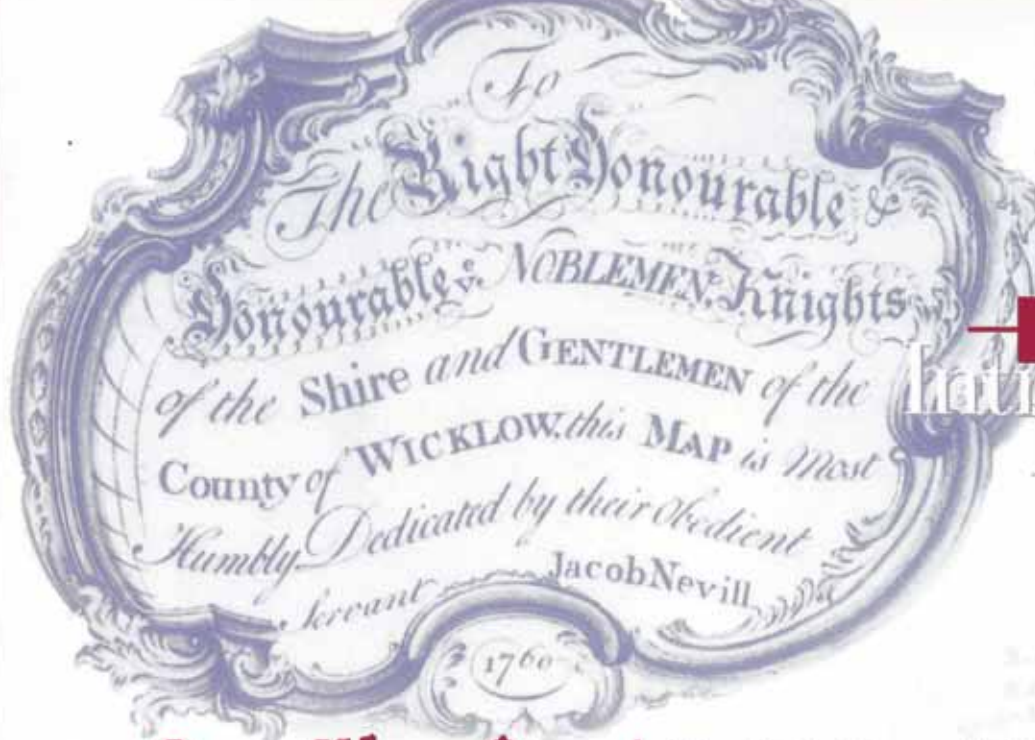 To
The Right Honourable &
Honourable ye NOBLEMEN, Knights
of the Shire and GENTLEMEN of the
County of WICKLOW, this MAP is Most
Humbly Dedicated by their Obedient
Servant Jacob Nevill
1760